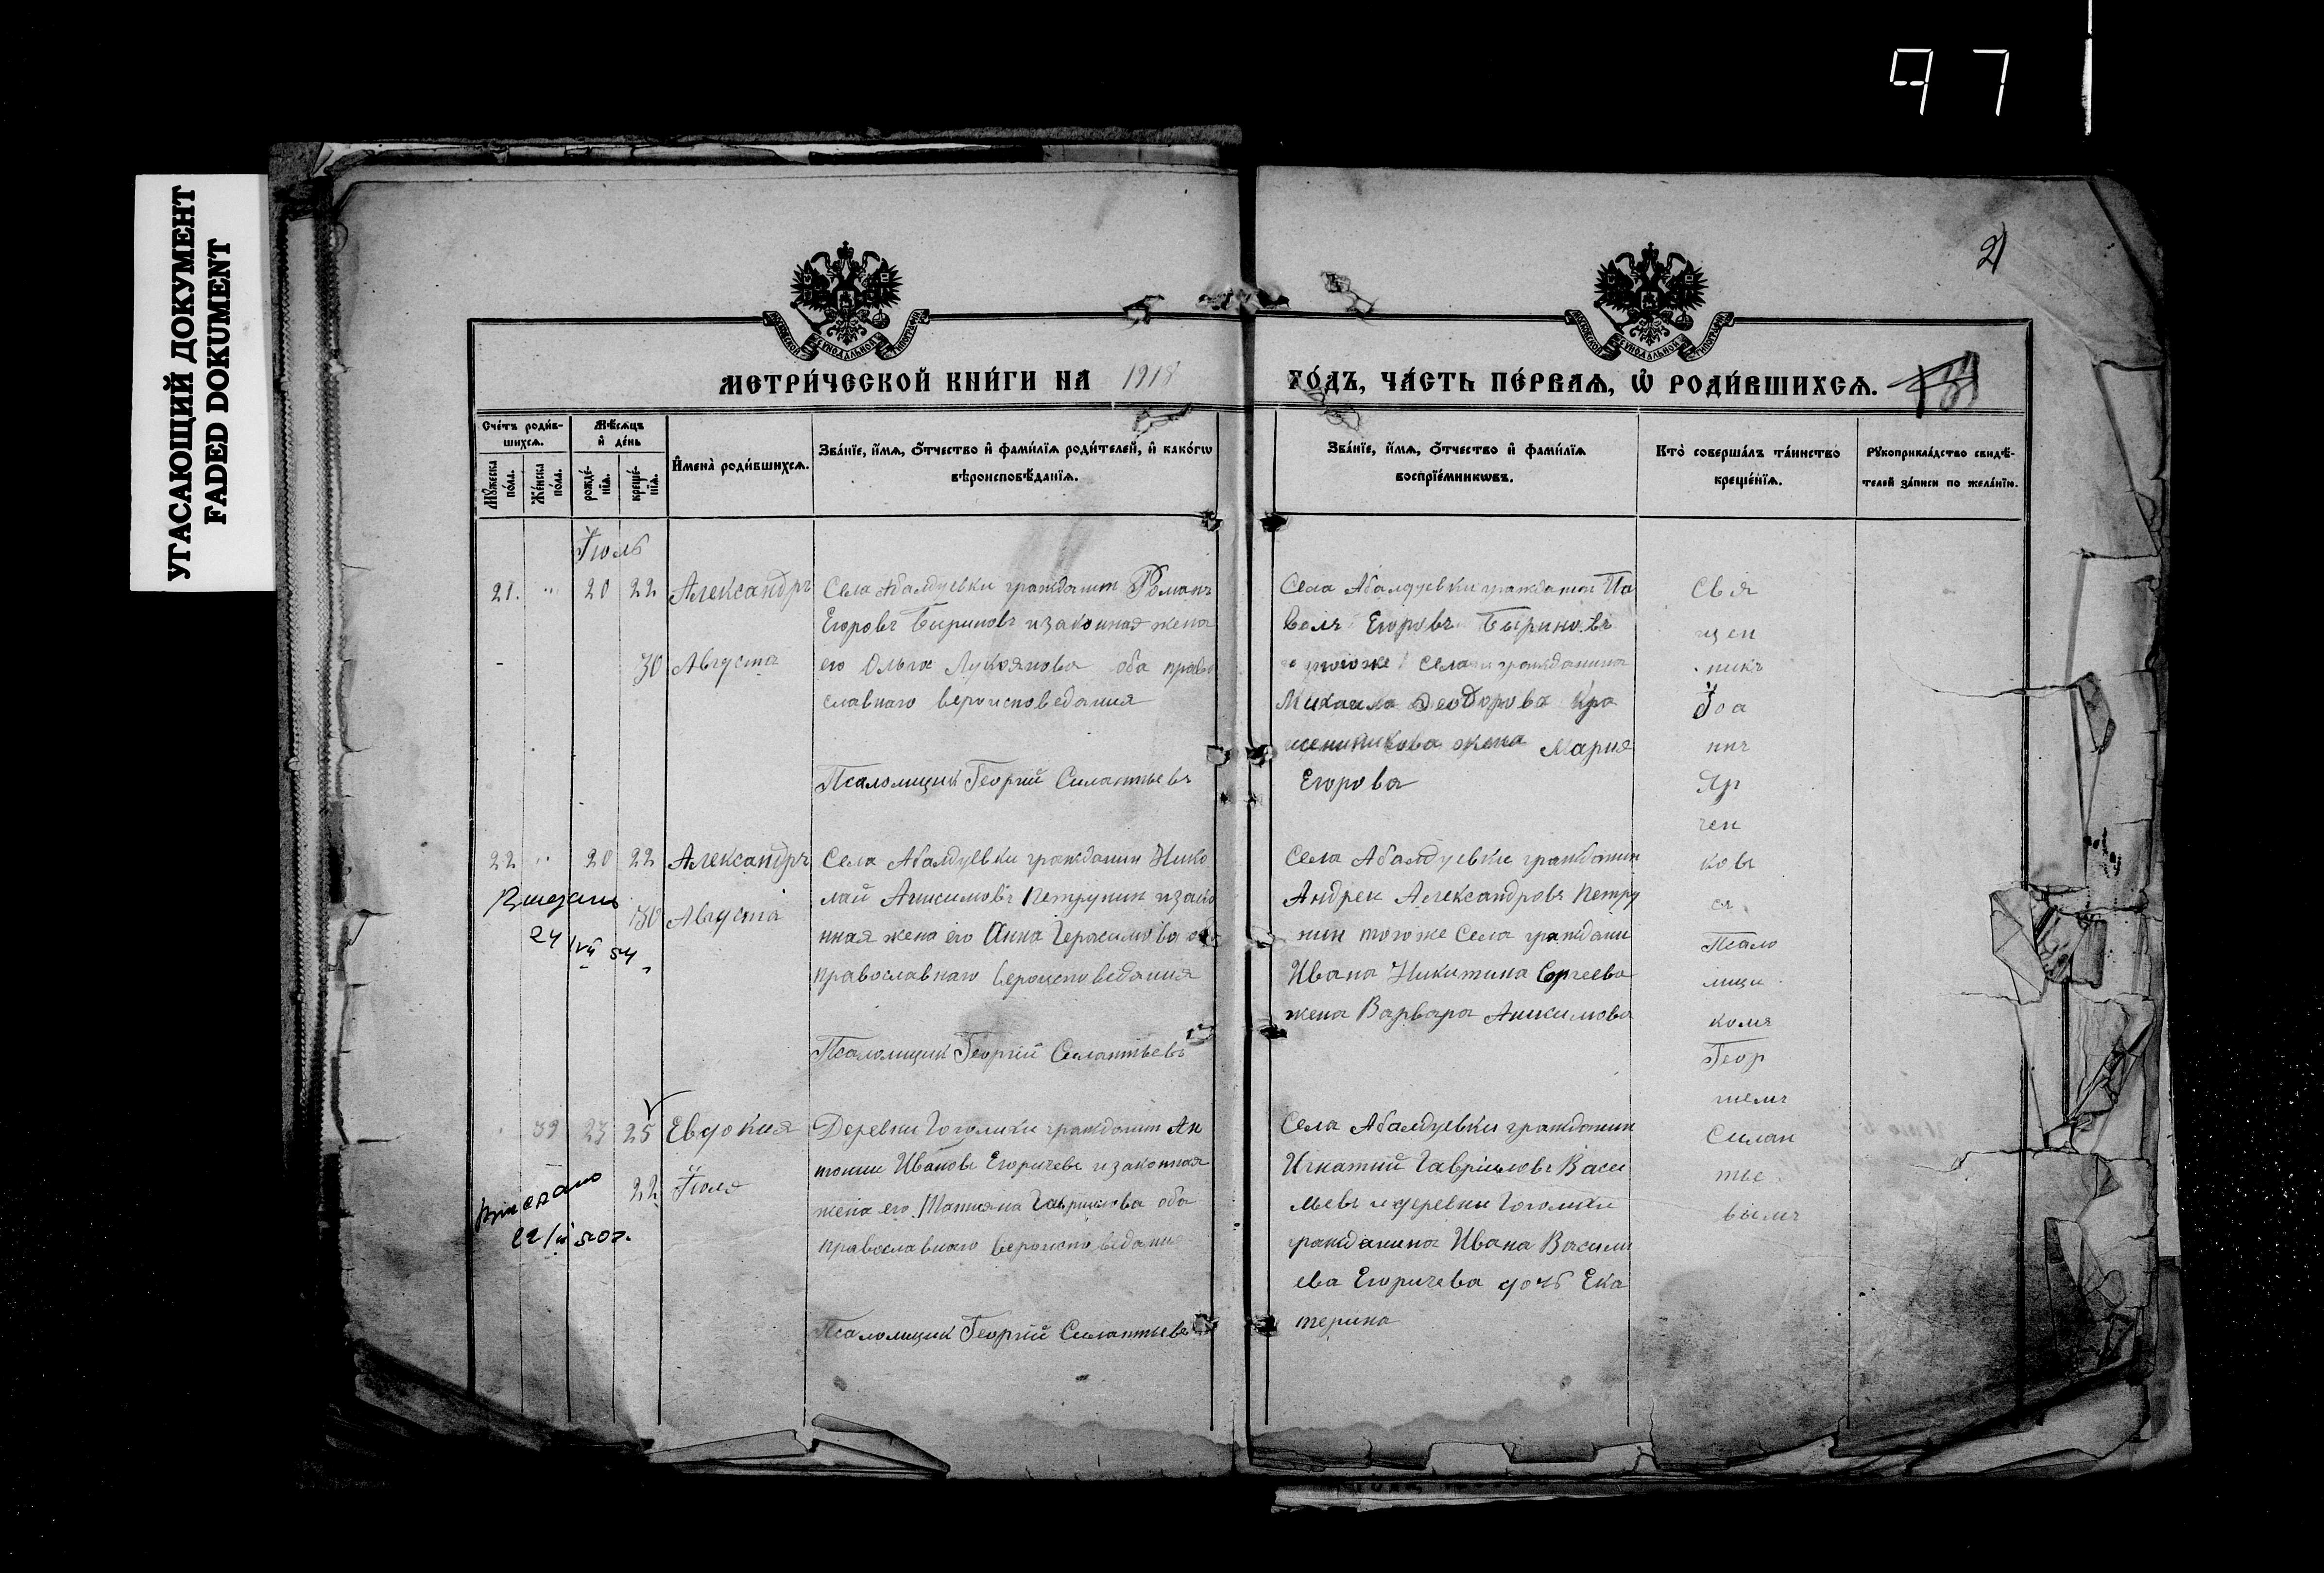 971
УГАСАЮЩИЙ ДОКУМЕНТ
FADED DOKUMENT
21
МЕТРИ́ЧЕСКОЙ КНИ́ГИ НА 1918 ГО́ДЪ, ЧА́СТЬ ПЕ́РВАѦ, Ѡ҆ РОДИ́ВШИХСѦ.
Сче́тъ роди́в-
шихсѧ.
Мꙋ́жеска
по́ла.
Же́нска
по́ла.
Мѣ́сѧцъ
и҆ де́нь
рожде́-
нїѧ.
креще́-
нїѧ.
И҆мена̀ роди́вшихсѧ.
Зва́нїе, и҆́мѧ, ѻ҆́тчество и҆ фами́лїѧ роди́телей, и҆ како́гѡ
вѣроисповѣ́данїѧ.
Зва́нїе, и҆́мѧ, ѻ҆́тчество и҆ фами́лїѧ
воспрїе́мникѡвъ.
Кто̀ соверша́лъ та́инство
креще́нїѧ.
Рꙋкоприкла́дство свидѣ́-
телей за́писи по жела́нїю.
Іюль
21. " 20 22 Александръ
30 Августа
Села Абалдуевки гражданин Романъ
Егоровъ Быриновъ и законная жена
его Ольга Лукоянова оба право
славнаго вероисповедания
Псаломщик Георгий Силантьевъ
Села Абалдуевки гражданин Па
велъ Егоровъ Быриновъ
и тогоже села гражданина
Михаила Феодорова Кра
шениникова жена Мария
Егорова
22 " 20 22 Александръ
30 Августа
Выдано
24/VII 54
Села Абалдуевки гражданин Нико
лай Анисимовъ Петрунин и зако
нная жена его Анна Герасимова об
православнаго вероисповедания
Псаломщик Георгий Силантьевъ
Села Абалдуевки гражданин
Андреи Александровъ Петру
нин тогоже Села граждани
Ивана Никитина Сергеева
жена Варвара Анисимова
39 23 25 Евдокия
22 Іюля
Выслано
22/ 50г.
Деревни Гоголихи гражданин Ан
тонии Ивановъ Егоричевъ и законная
жена его Татияна Гаврилова оба
православнаго вероисповедания
Псаломщик Георгий Силантьевъ
Села Абалдуевки гражданин
Игнатий Гавриловъ Васи
льевъ и деревни Гоголихи
гражданина Ивана Василь
ева Егоричева дочь Ека
терина
Свя
щен
никъ
Іоа
ннъ
Яр
чен
ковъ
съ
Псало
мщи
комъ
Геор
гиемъ
Силан
тье
вымъ